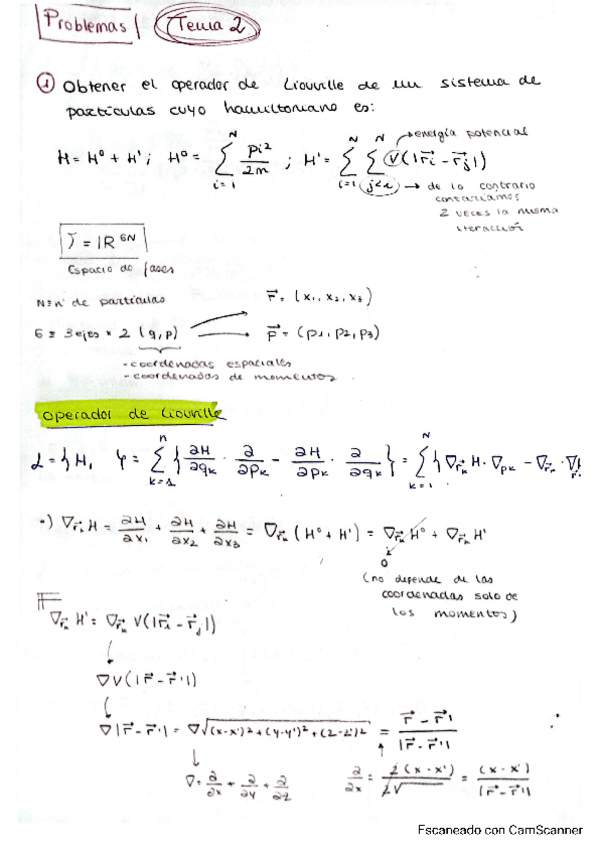 Problemas Tema 2
① Obtener el operador de Liouville de un sistema de
partículas cuyo hamiltoniano es:
H = H⁰ + H' ; H⁰ = Σ_{i=1}^{N} pi²/2m ; H' = Σ_{i=1}^{N} Σ_{j<i}^{N} V(|r⃗i - r⃗j|) → energía potencial
→ de lo contrario
contaríamos
2 veces la misma
iteracción
Γ = IR^{6N}
Espacio de fases
N ≡ nº de partículas
r⃗ = (x₁, x₂, x₃)
6 ≡ 3 ejes × 2 (q, p)
p⃗ = (p₁, p₂, p₃)
- coordenadas espaciales
- coordenadas de momentos
Operador de Liouville
L = {H, } = Σ_{k=1}^{n} { ∂H/∂qk · ∂/∂pk - ∂H/∂pk · ∂/∂qk } = Σ_{k=1}^{N} { ∇_{r⃗k} H · ∇_{pk} -
·) ∇_{r⃗k} H = ∂H/∂x₁ + ∂H/∂x₂ + ∂H/∂x₃ = ∇_{r⃗k} (H⁰ + H') = ∇_{r⃗k} H⁰ + ∇_{r⃗k} H'
0
(no depende de las
coordenadas solo de
los momentos)
∇_{r⃗k} H' = ∇_{r⃗k} V(|r⃗i - r⃗j|)
↓
∇V(|r⃗ - r⃗'|)
↓
∇|r⃗ - r⃗'| = ∇√((x-x')² + (y-y')² + (z-z')²) = (r⃗ - r⃗')/|r⃗ - r⃗'|
↓
∇ = ∂/∂x + ∂/∂y + ∂/∂z
∂/∂x = 2(x - x')/2√ = (x - x')/|r⃗ - r⃗'|
Escaneado con CamScanner